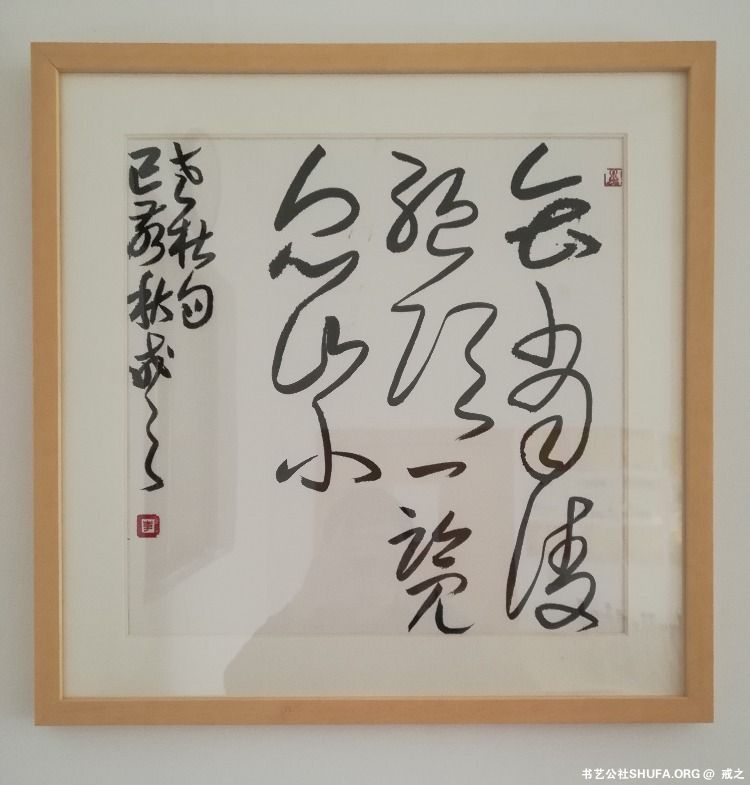 会當凌
絶頂一覽
众山小
老杜句
己亥秋戒之
李
书艺公社SHUFA.ORG @ 戒之